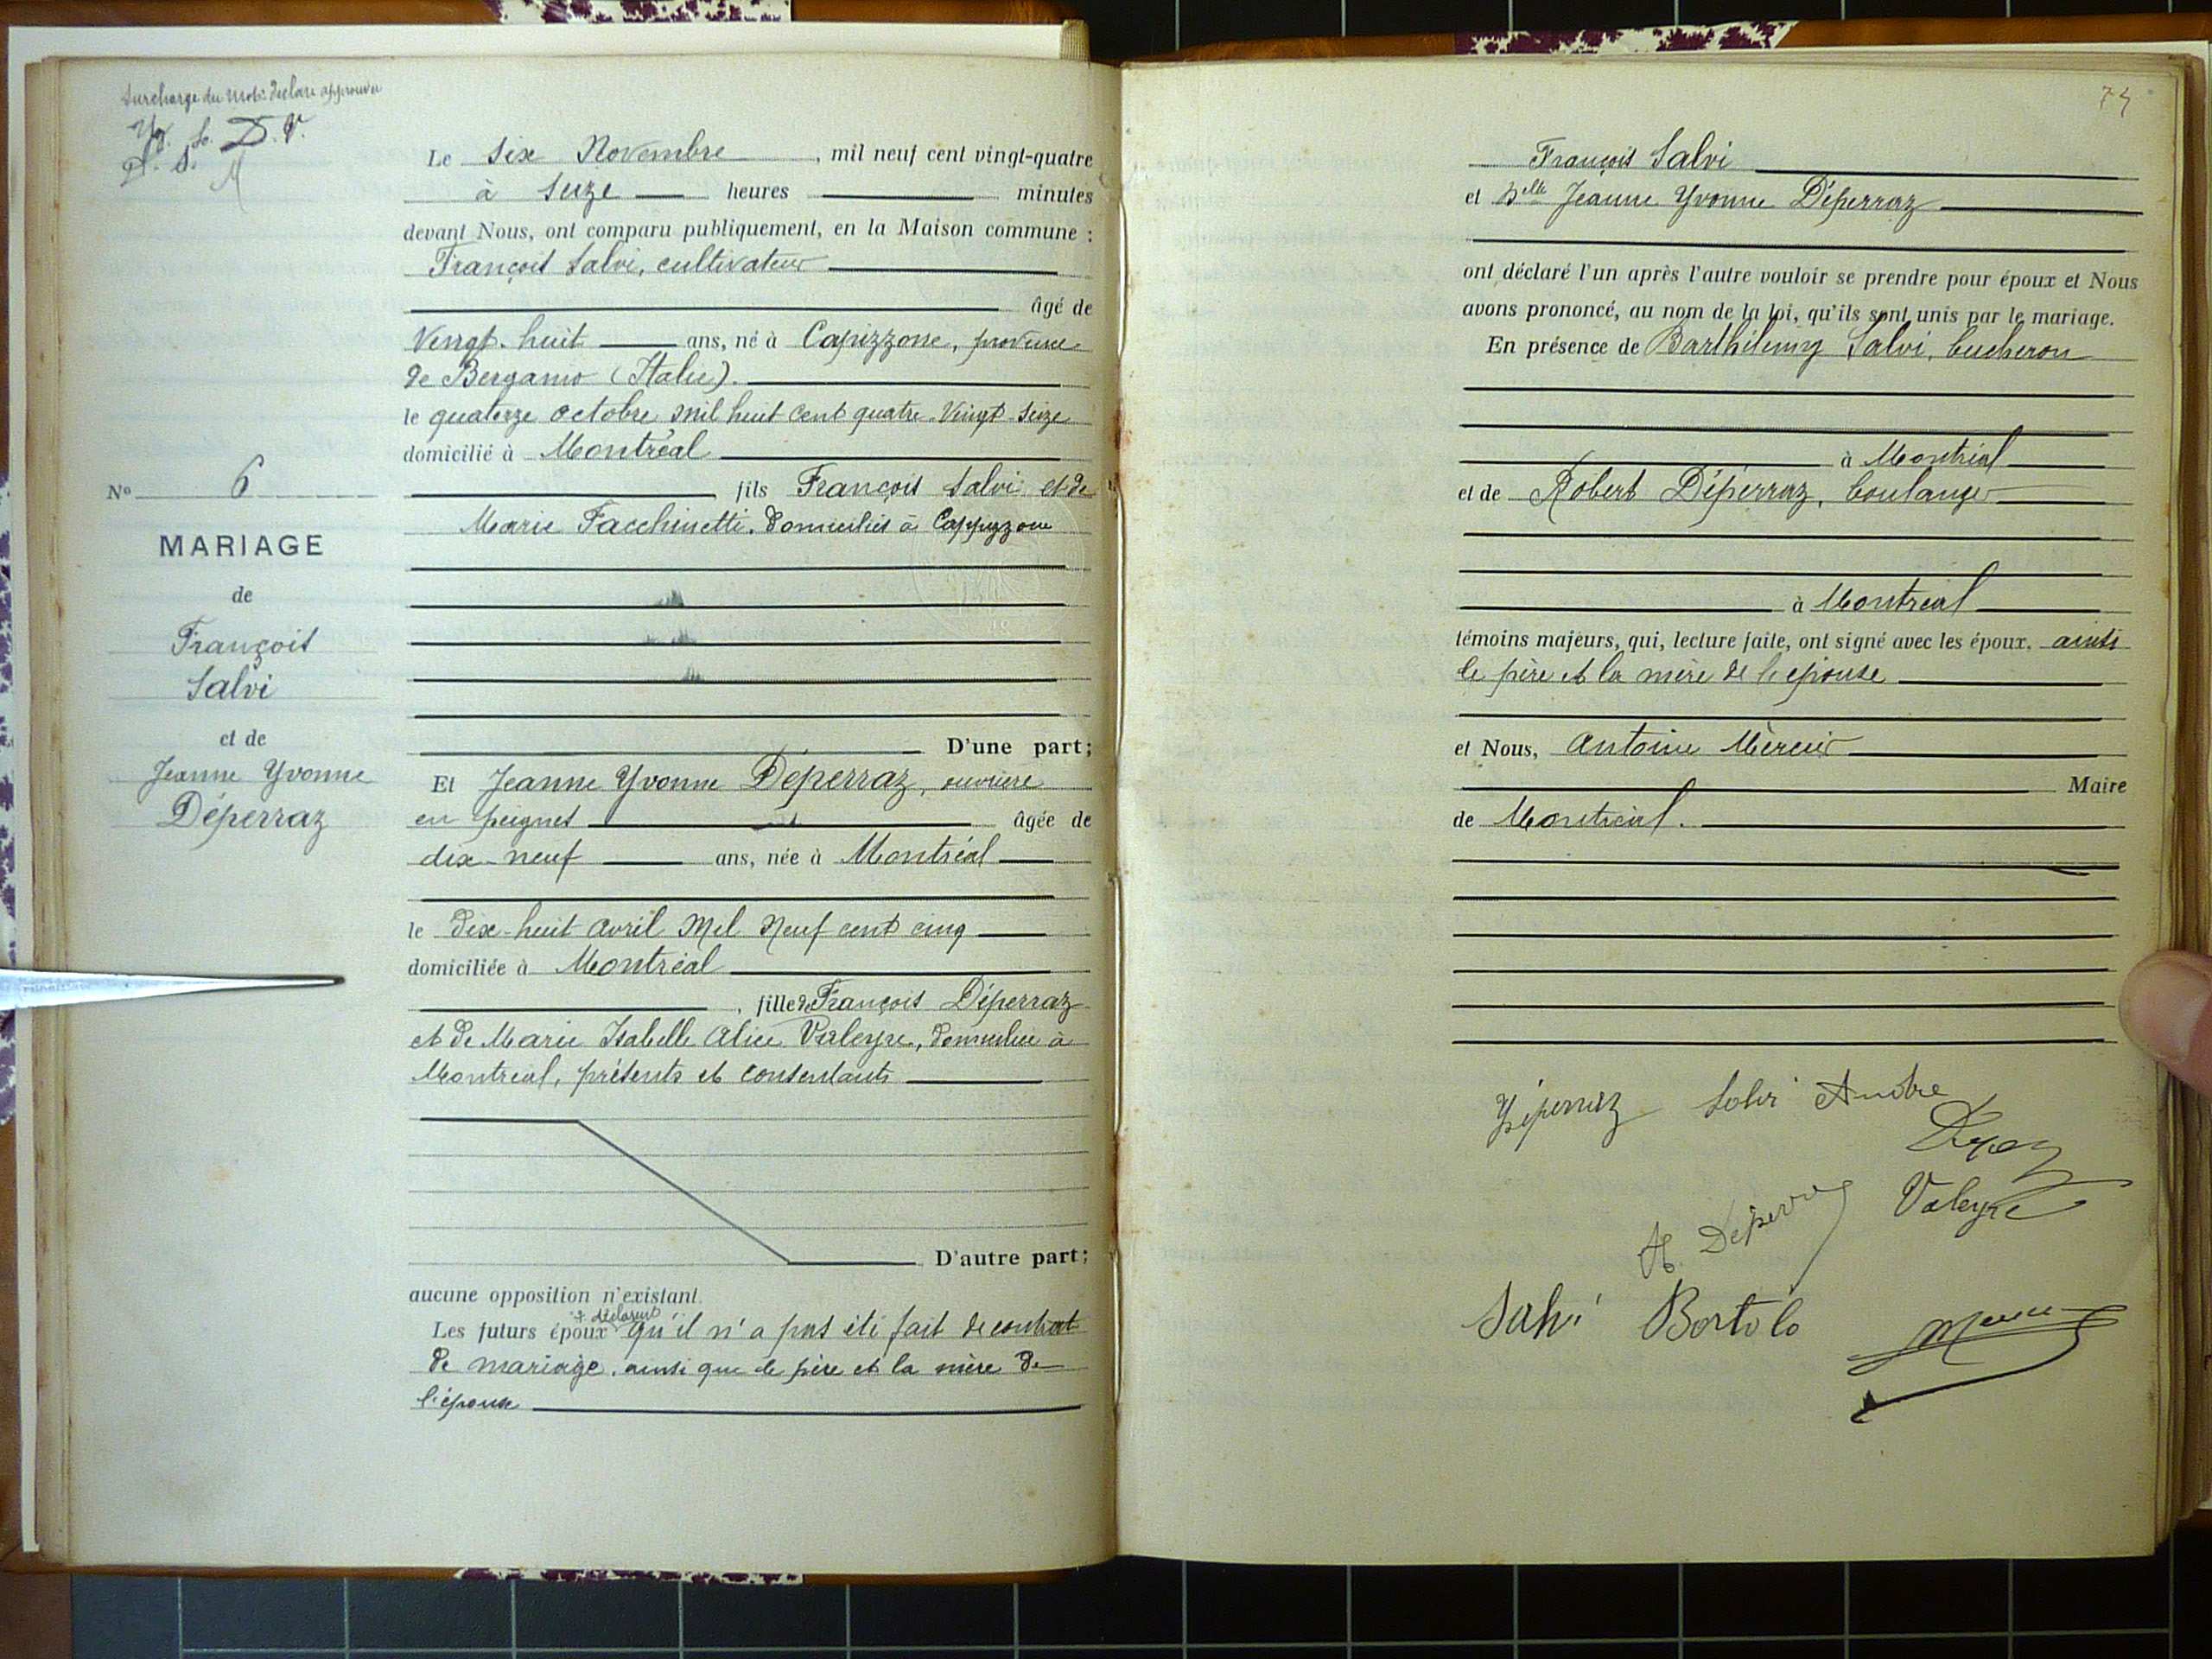 Surcharge du mot déclare approuvée
D. V.
Le six Novembre, mil neuf cent vingt-quatre
à seize heures minutes
devant Nous, ont comparu publiquement, en la Maison commune :
François Salvi, cultivateur
âgé de
vingt-huit ans, né à Capizzone, province
de Bergamo (Italie).
le quatorze octobre mil huit cent quatre-vingt-seize
domicilié à Montréal
fils François Salvi et de
Marie Facchinetti, domiciliés à Cappizzone
D'une part;
Et Jeanne Yvonne Déperraz, ouvrière
en peignes âgée de
dix-neuf ans, née à Montréal
le dix-huit avril mil neuf cent cinq
domiciliée à Montréal
, fille de François Déperraz
et de Marie Isabelle Alice Valeyre, domiciliés à
Montréal, présents et consentants
D'autre part;
aucune opposition n'existant.
Les futurs époux déclarent qu'il n'a pas été fait de contrat
de mariage, ainsi que le père et la mère de
l'épouse
No 6
MARIAGE
de
François
Salvi
et de
Jeanne Yvonne
Déperraz
74
François Salvi
et Delle Jeanne Yvonne Déperraz
ont déclaré l'un après l'autre vouloir se prendre pour époux et Nous
avons prononcé, au nom de la loi, qu'ils sont unis par le mariage.
En présence de Barthélemy Salvi, bucheron
à Montréal
et de Robert Déperraz, boulanger
à Montréal
témoins majeurs, qui, lecture faite, ont signé avec les époux, ainsi
le père et la mère de l'épouse
et Nous, Antoine Mercier
Maire
de Montréal.
Y Déperraz Salvi Andre
Valeyre
Deperraz
Salvi Bortolo
Mercier